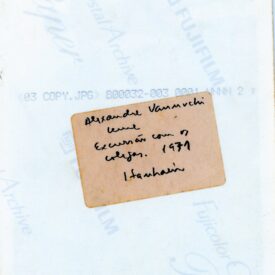 Super
Crystal Archive
FUJIFILM
FUJIFILM
<03 COPY.JPG> 800032-003 0001 NNNN 2
Alexandre Vannuchi
Leme
Excursão com os
colegas. 1971
Itanhaém
Archive
Fujicolor